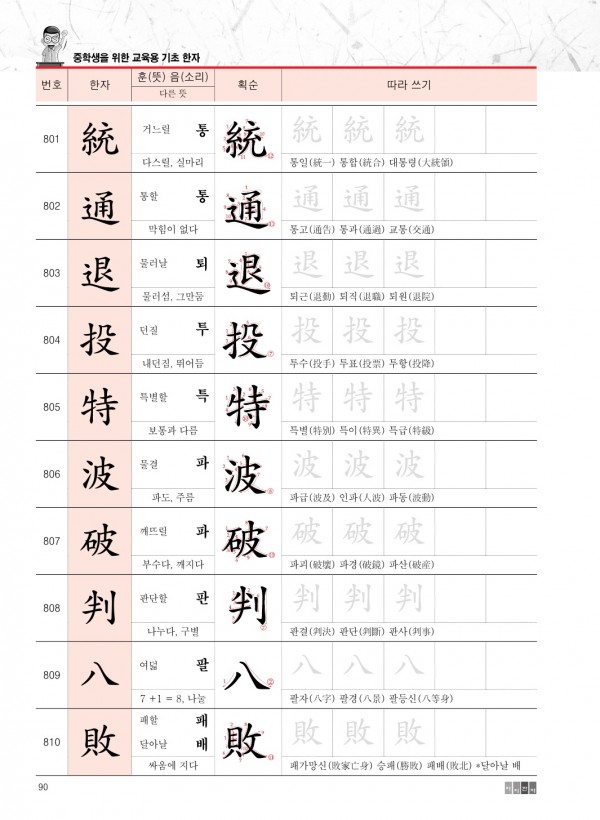 중학생을 위한 교육용 기초 한자
번호 한자 훈(뜻) 음(소리) 획순 따라 쓰기
다른 뜻
801 統 거느릴 통 統 統 統 統
다스릴, 실마리 통일(統一) 통합(統合) 대통령(大統領)
802 通 통할 통 通 通 通 通
막힘이 없다 통고(通告) 통과(通過) 교통(交通)
803 退 물러날 퇴 退 退 退 退
물러섬, 그만둠 퇴근(退勤) 퇴직(退職) 퇴원(退院)
804 投 던질 투 投 投 投 投
내던짐, 뛰어듬 투수(投手) 투표(投票) 투항(投降)
805 特 특별할 특 特 特 特 特
보통과 다름 특별(特別) 특이(特異) 특급(特級)
806 波 물결 파 波 波 波 波
파도, 주름 파급(波及) 인파(人波) 파동(波動)
807 破 깨뜨릴 파 破 破 破 破
부수다, 깨지다 파괴(破壞) 파경(破鏡) 파산(破産)
808 判 판단할 판 判 判 判 判
나누다, 구별 판결(判決) 판단(判斷) 판사(判事)
809 八 여덟 팔 八 八 八 八
7 +1 = 8, 나눌 팔자(八字) 팔경(八景) 팔등신(八等身)
810 敗 패할 패 敗 敗 敗 敗
달아날 배
싸움에 지다 패가망신(敗家亡身) 승패(勝敗) 패배(敗北) *달아날 배
90